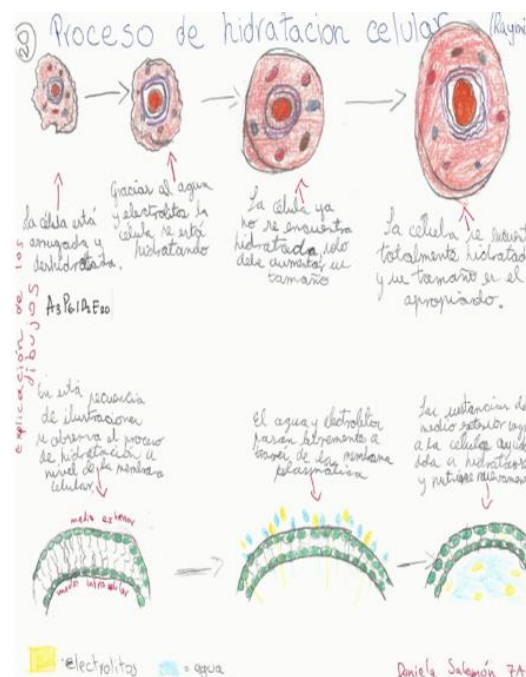 20 Proceso de hidratacion celular
La célula está
arrugada y
deshidratada.
Gracias al agua
y electrolitos la
célula se está
hidratando
La célula ya
no se encuentra
hidratada, solo
debe aumentar su
tamaño
La célula se
totalmente
y su tamaño es el
apropiado.
explicación de los
dibujos
A3P61D2E20
En está secuencia
de ilustraciones
se observa el proceso
de hidratación a
nivel de la membrana
celular.
El agua y electrolitos
pasan libremente a
través de la membrana
plasmática
Las sustancias
medio exterior
a la célula
a
y
medio externo
medio intracelular
electrolitos
= agua
Daniela Salomón 7A